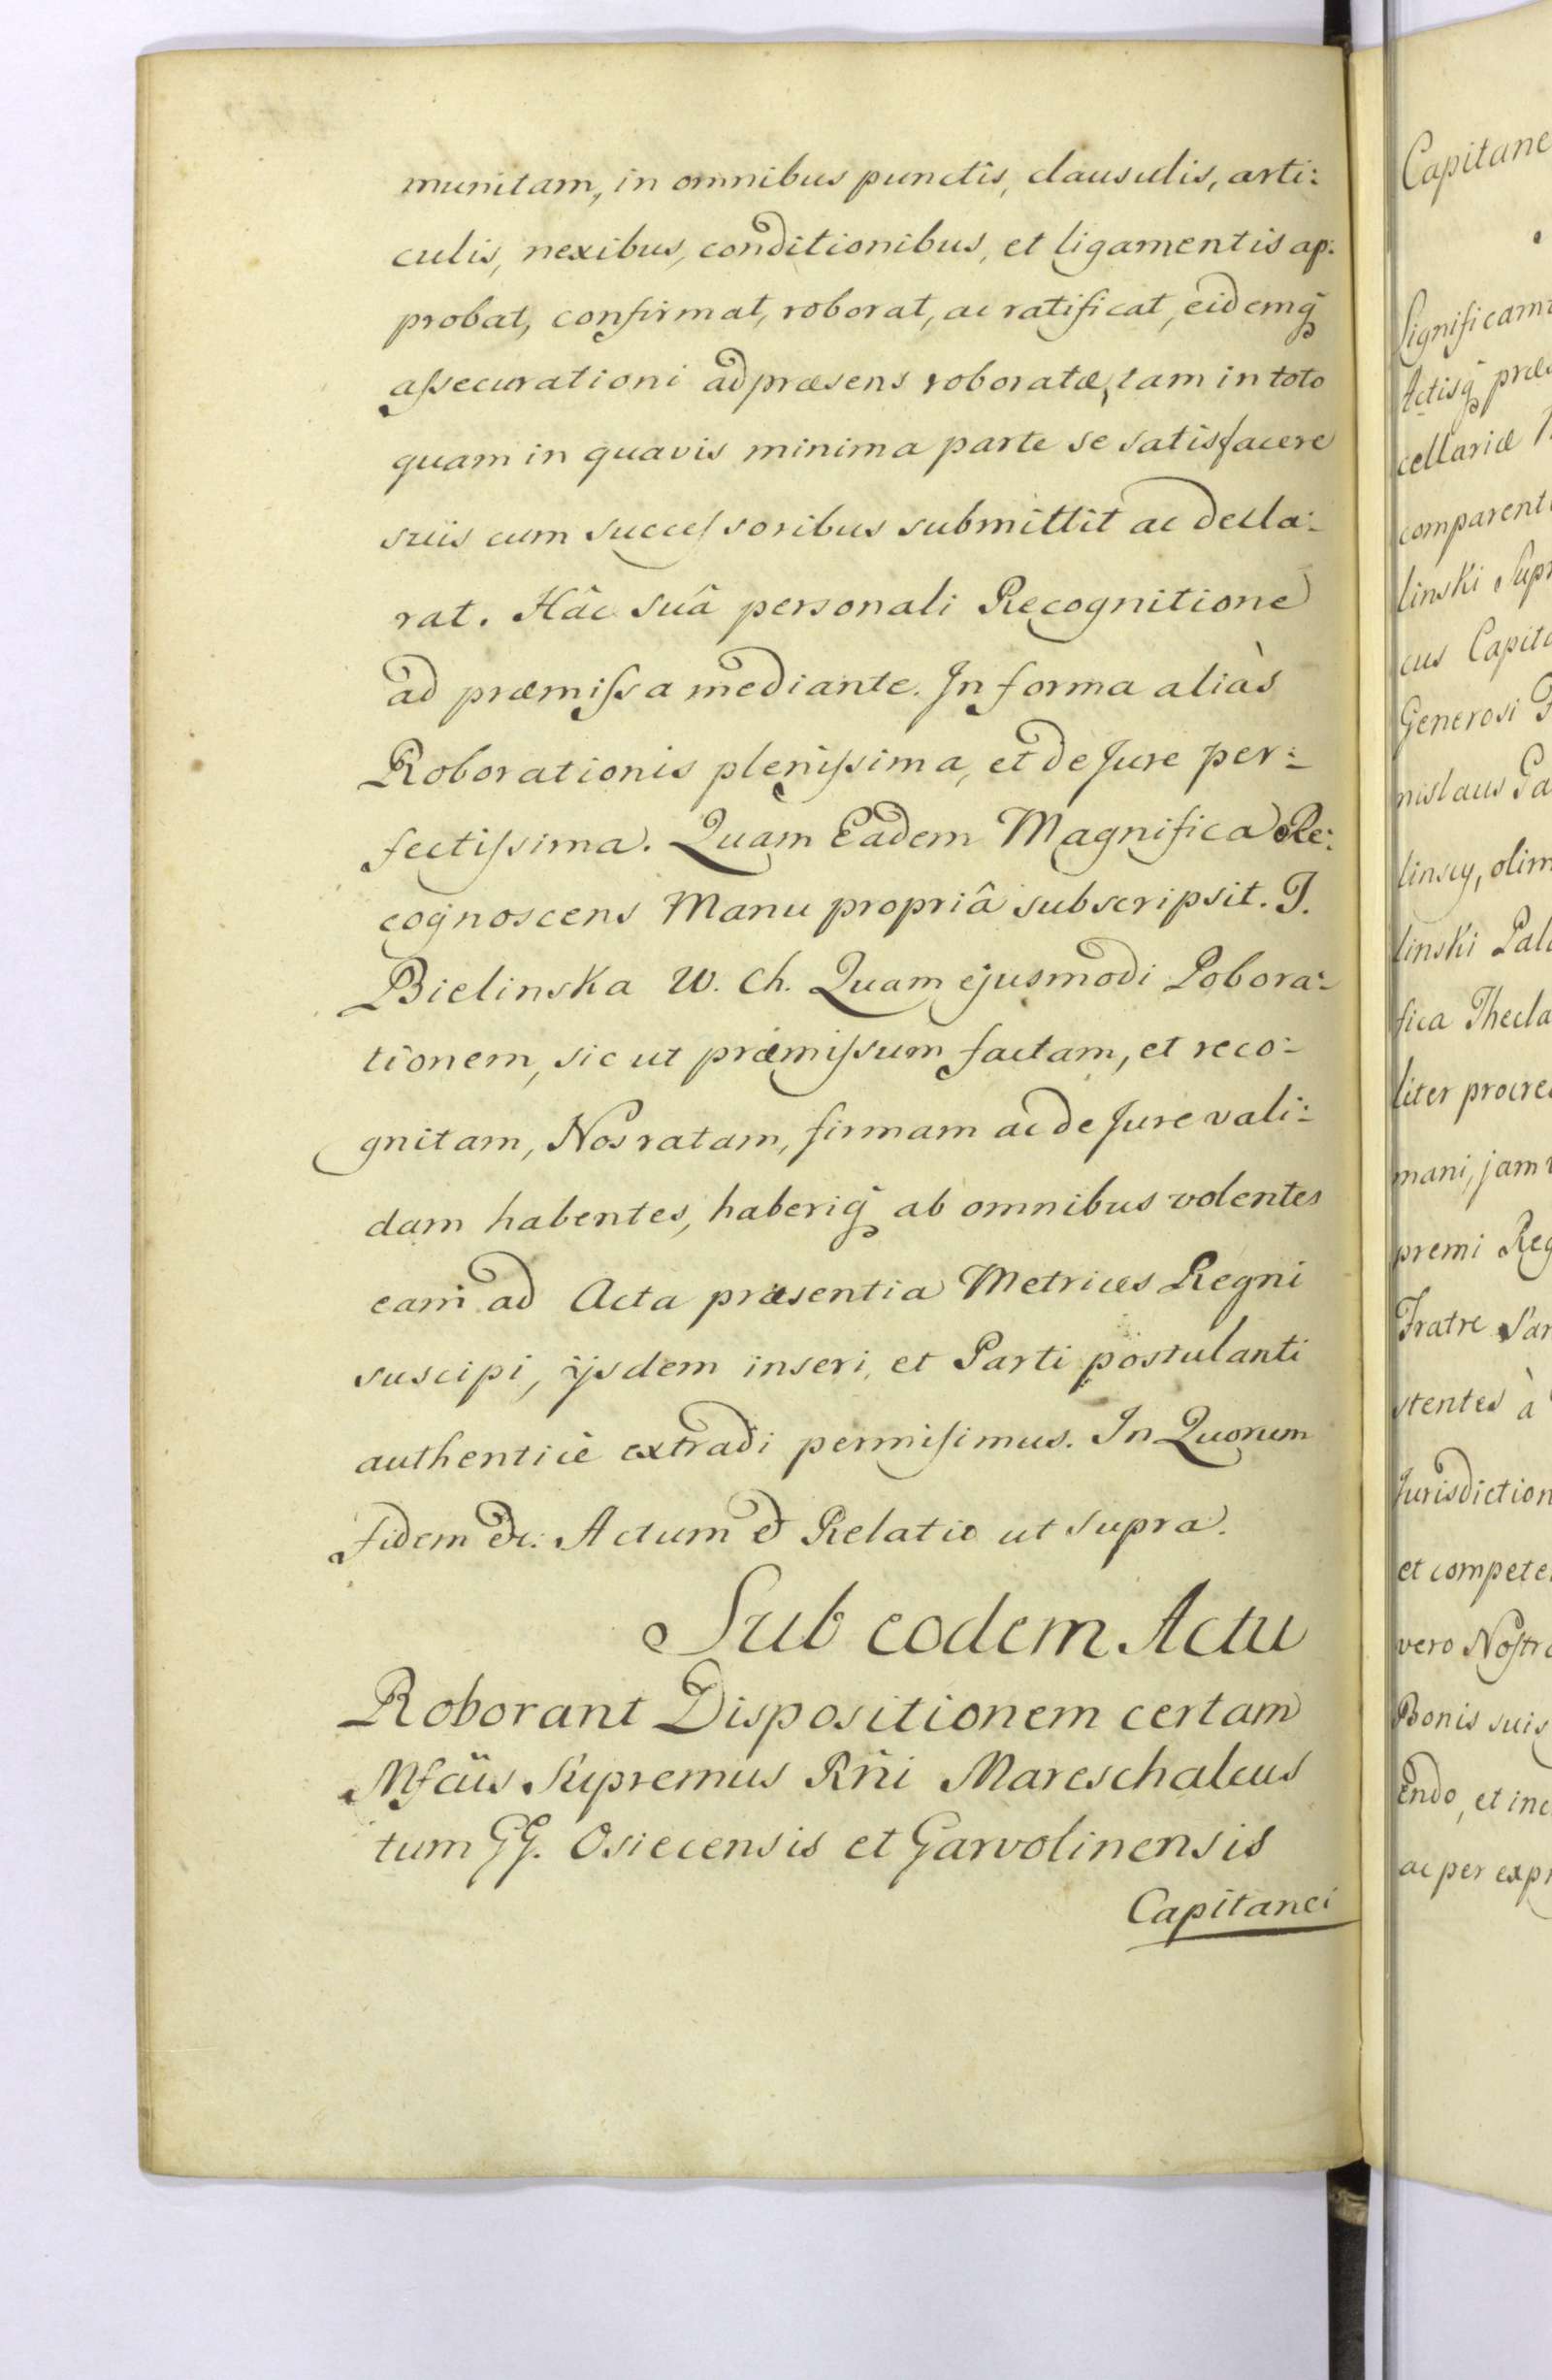 munitam, in omnibus punctis, clausulis, arti:
culis, nexibus, conditionibus, et ligamentis ap:
probat, confirmat, roborat, ac ratificat, eidemq̃
aſsecurationi ad præsens roboratæ, tam in toto
quam in quavis minima parte se satisfacere
suis cum succeſsoribus submittit ac decla:
rat. Hâc suâ personali Recognitione
ad præmiſsa mediante. In forma aliàs
Roborationis pleniſsima, et de Jure per:
fectiſsima. Quam Eadem Magnifica Re:
cognoscens Manu propriâ subscripsit. T.
Bielinska W. Ch. Quam ejusmodi Robora:
tionem, sic ut præmiſsum factam, et reco:
gnitam, Nos ratam, firmam ac de Jure vali:
dam habentes, haberiq̃ ab omnibus volentes
eam ad Acta præsentia Metrices Regni
suscipi, ijsdem inseri, et Parti postulanti
authenticè extradi permisimus. In Quorum
Fidem &c: Actum & Relatio ut supra.
Sub eodem Actu
Roborant Dispositionem certam
Mfcus Supremus Rñi Mareschalcus
tum GG. Osiecensis et Garvolinensis
Capitanei
Capitane
Significam
Actisq̃ præs
cellariæ
comparent
linski Supr
cus Capita
Generosi
nislaus Ga
linscy, olim
linski Pala
fica Thecla
liter procre
mani, jam
premi Reg
Fratre
stentes à
Jurisdiction
et compete
vero Noſtro
Bonis suis
endo, et inc
ac per expr